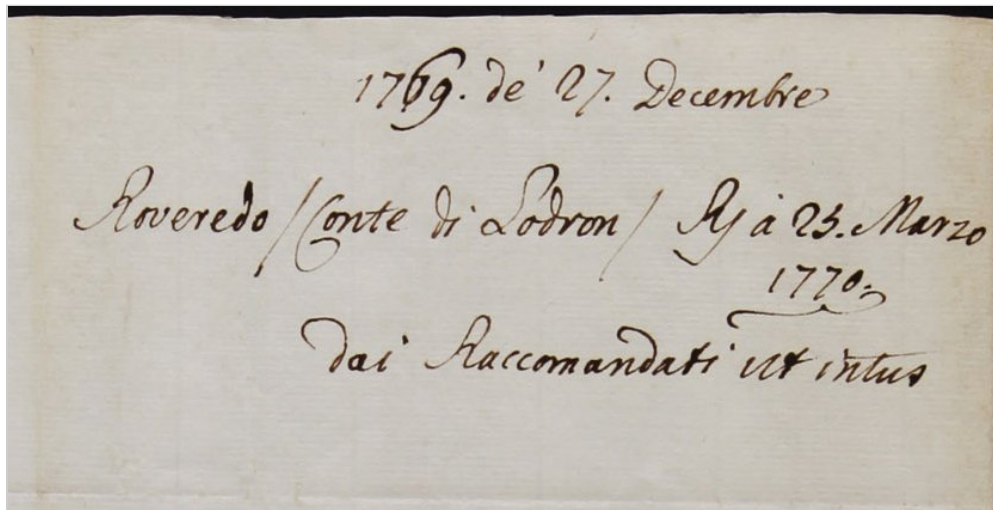 1769. de' 27. Decembre
Roveredo /Conte di Lodron/ Rj à 25. Marzo
1770.
dai Raccomandati ut intus